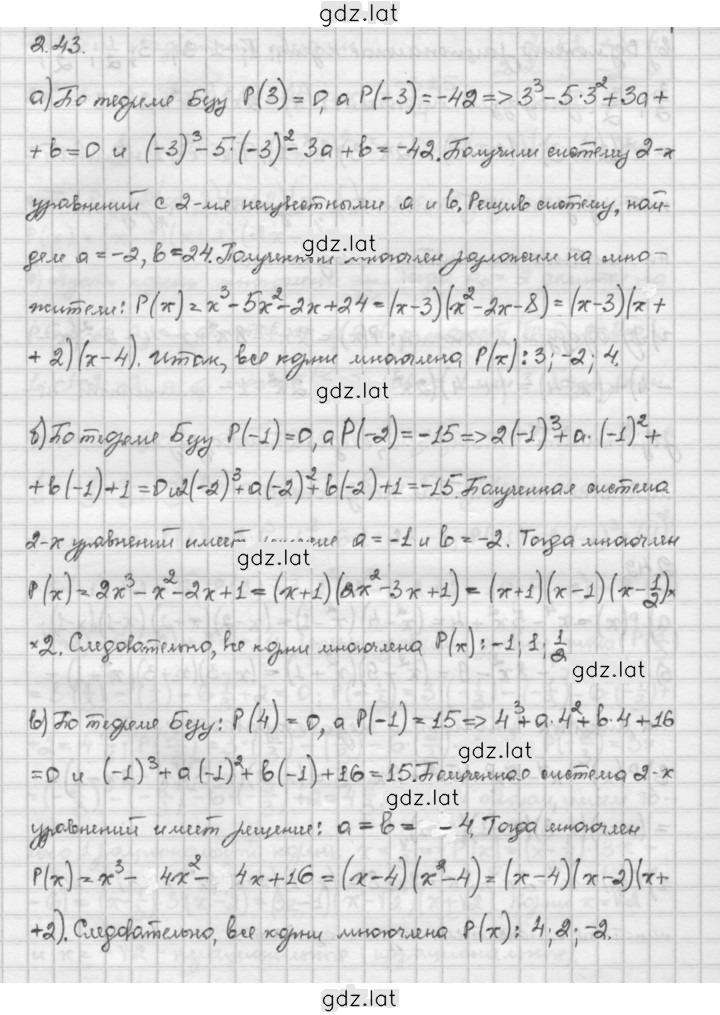 gdz.lat
2.43.
а) По теореме Безу P(3) = 0, а P(-3) = -42 => 3³ - 5·3² + 3a +
+ b = 0 и (-3)³ - 5·(-3)² - 3a + b = -42. Получили систему 2-х
уравнений с 2-мя неизвестными a и b. Решив систему, най-
gdz.lat
дем a = -2, b = 24. Полученный многочлен разложим на мно-
жители: P(x) = x³ - 5x² - 2x + 24 = (x-3)(x² - 2x - 8) = (x-3)(x +
+ 2)(x-4). Итак, все корни многочлена P(x): 3; -2; 4.
gdz.lat
б) По теореме Безу P(-1) = 0, а P(-2) = -15 => 2(-1)³ + a·(-1)² +
+ b(-1) + 1 = 0 и 2(-2)³ + a(-2)² + b(-2) + 1 = -15. Полученная система
2-х уравнений имеет a = -1 и b = -2. Тогда многочлен
gdz.lat
P(x) = 2x³ - x² - 2x + 1 = (x+1)(2x² - 3x + 1) = (x+1)(x-1)(x - 1/2)×
×2. Следовательно, все корни многочлена P(x): -1; 1; 1/2
gdz.lat
в) По теореме Безу: P(4) = 0, а P(-1) = 15 => 4³ + a·4² + b·4 + 16
gdz.lat
= 0 и (-1)³ + a(-1)² + b(-1) + 16 = 15. Полученная система 2-х
gdz.lat
уравнений имеет решение: a = b = -4. Тогда многочлен
P(x) = x³ - 4x² - 4x + 16 = (x-4)(x² - 4) = (x-4)(x-2)(x +
+2). Следовательно, все корни многочлена P(x): 4; 2; -2.
gdz.lat